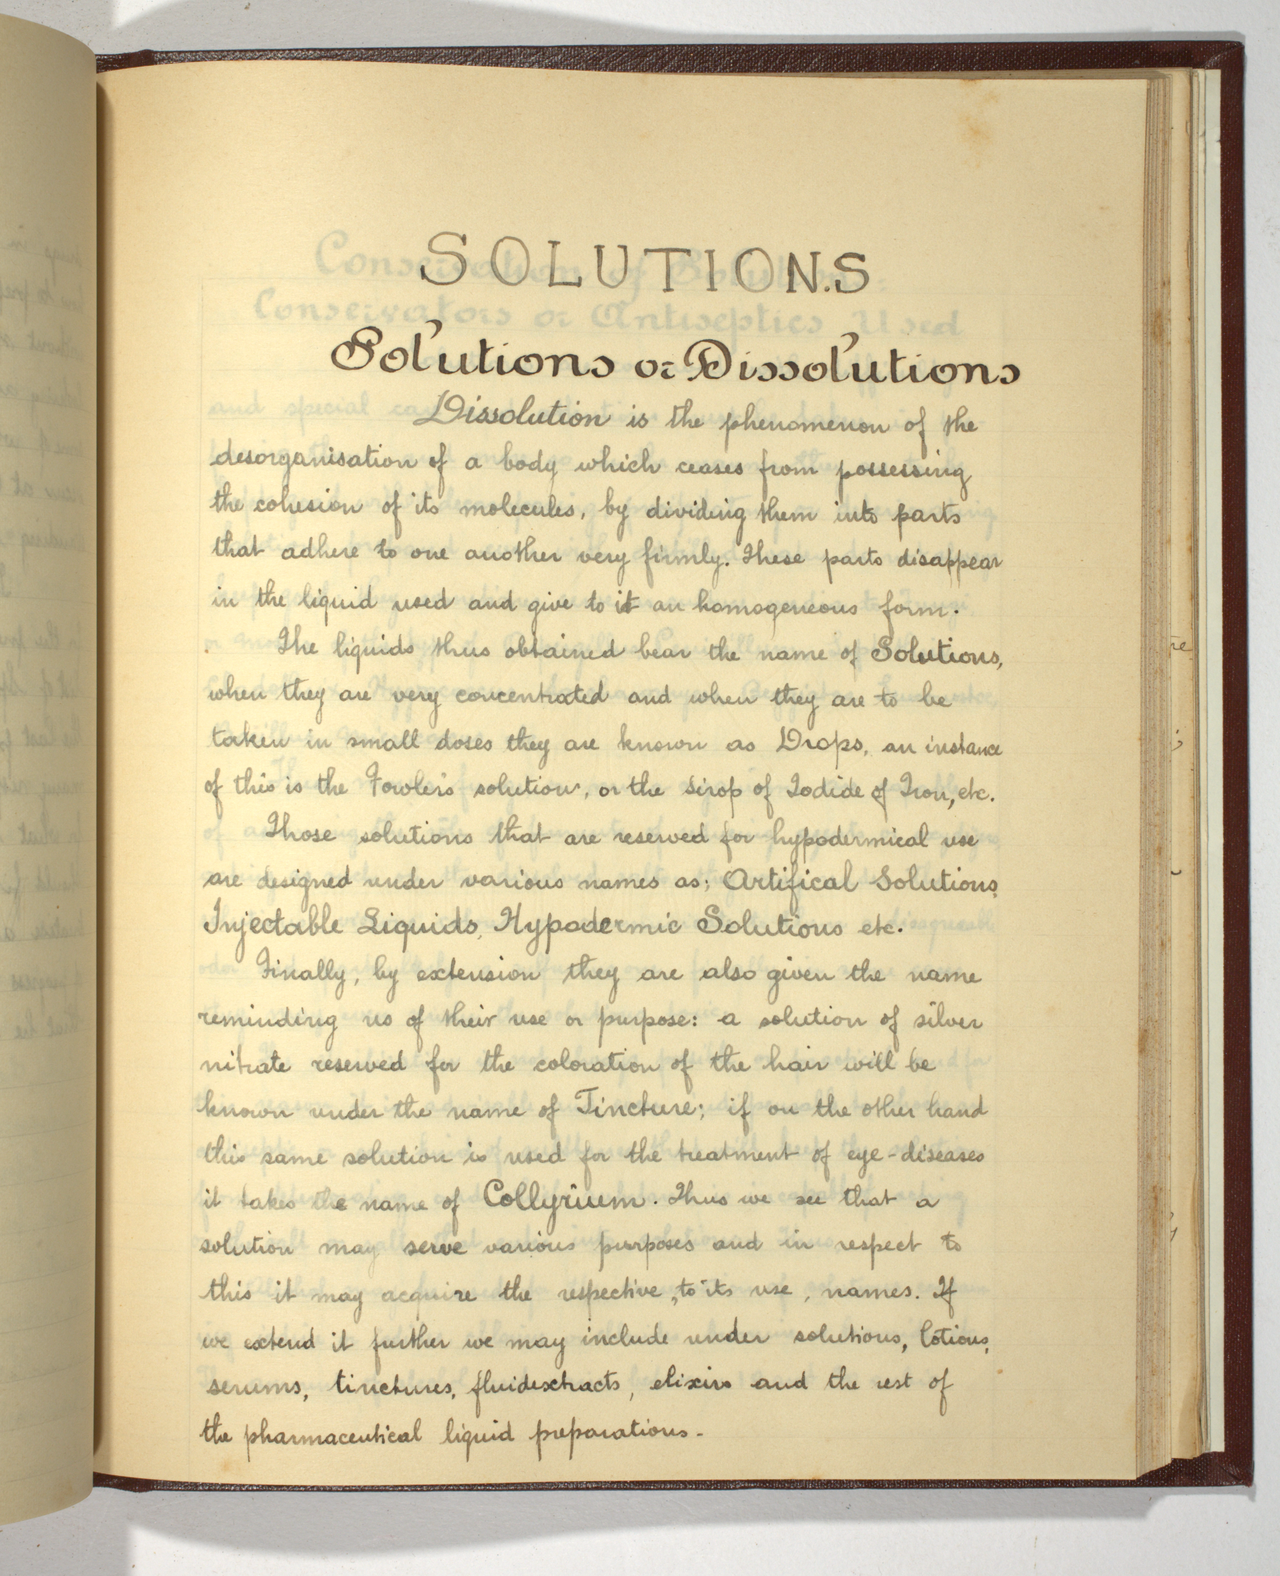 SOLUTIONS
Solutions or Dissolutions
Dissolution is the phenomenon of the
desorganisation of a body which ceases from possessing
the cohesion of its molecules, by dividing them into parts
that adhere to one another very firmly. These parts disappear
in the liquid used and give to it an homogeneous form.
The liquids thus obtained bear the name of Solutions,
when they are very concentrated and when they are to be
taken in small doses they are known as Drops, an instance
of this is the Fowler's solution, or the Sirop of Iodide of Iron, etc.
Those solutions that are reserved for hypodermical use
are designed under various names as; Artifical Solutions,
Injectable Liquids, Hypodermic Solutions etc.
Finally, by extension they are also given the name
reminding us of their use or purpose: a solution of silver
nitrate reserved for the coloration of the hair will be
known under the name of Tincture; if on the other hand
this same solution is used for the treatment of eye-diseases
it takes the name of Collyrium. Thus we see that a
solution may serve various purposes and in respect to
this it may acquire the respective, to its use, names. If
we extend it further we may include under solutions, lotions,
serums, tinctures, fluidextracts, elixirs and the rest of
the pharmaceutical liquid preparations.-